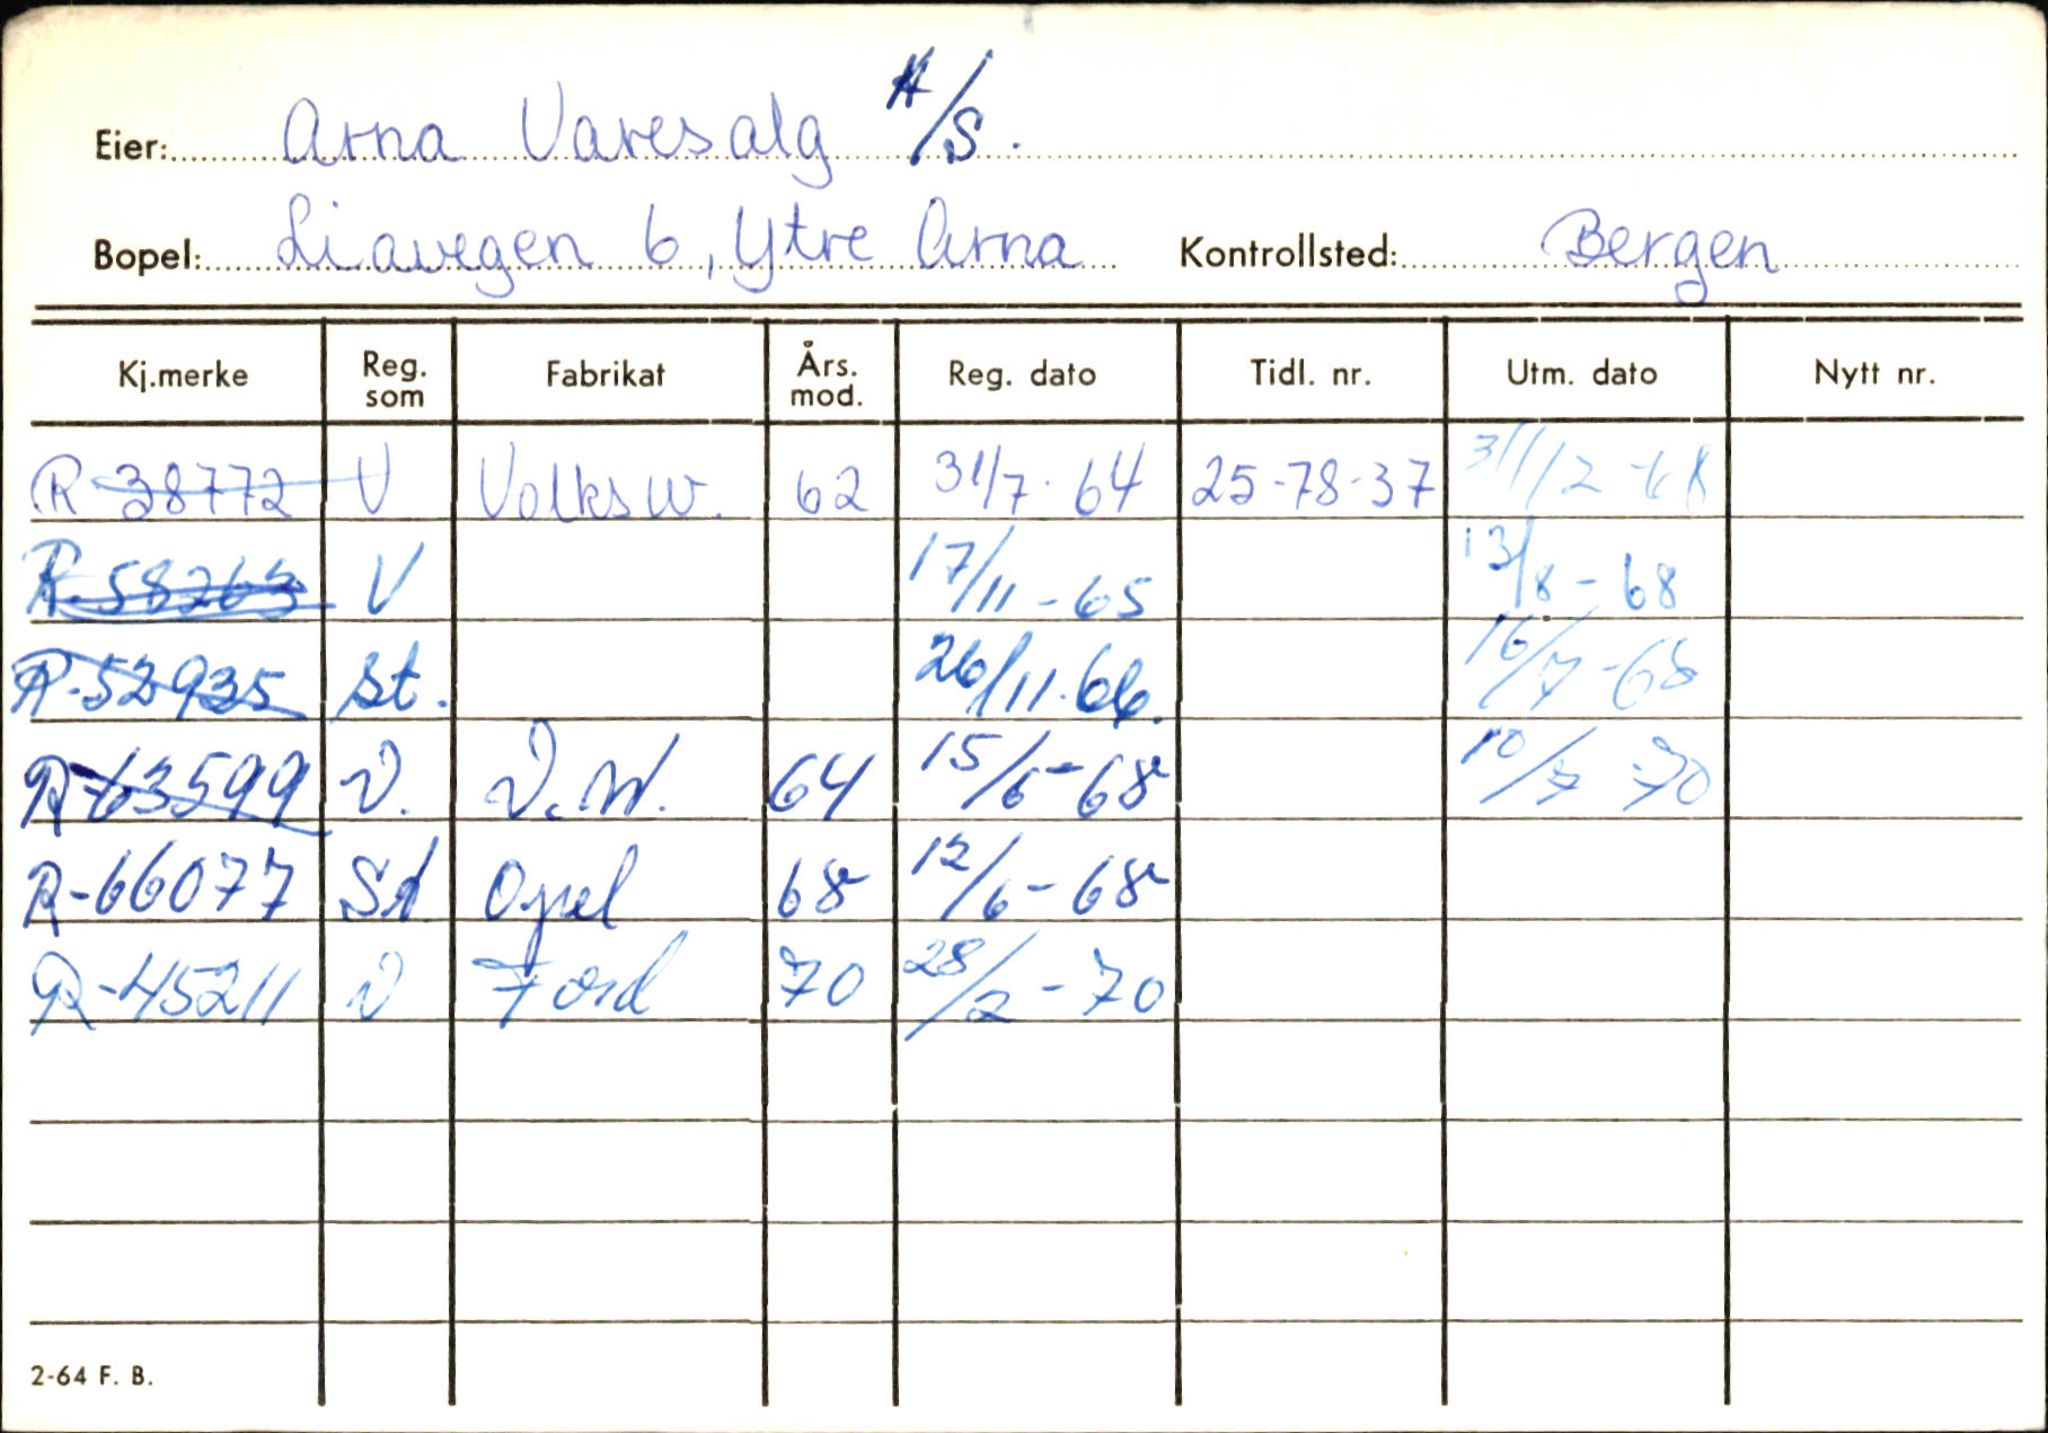 Eier: Arna Varesalg A/S.
Bopel: Liavegen 6, Ytre Arna Kontrollsted: Bergen
Kj.merke Reg. som Fabrikat Års. mod. Reg. dato Tidl. nr. Utm. dato Nytt nr.
R-38772 V Volksw. 62 31/7-64 25-78-37 31/12-68
R-58263 V 17/11-65 13/8-68
R-52935 St. 26/11-66. 16/7-68
R-63599 V. V.W. 64 15/6-68 10/7-70
R-66077 St Opel 68 12/6-68
R-45211 V Ford 70 28/2-70
2-64 F. B.